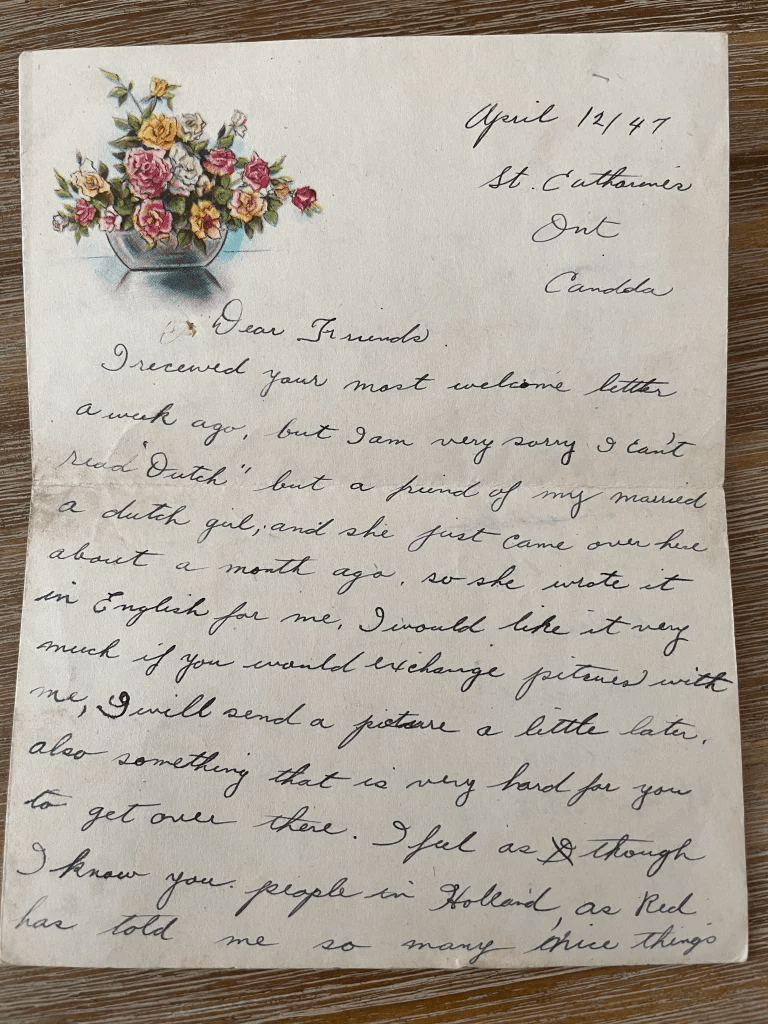 April 12/47
St. Catharines
Ont
Candda
Dear Friends.
I received your most welcome letter
a week ago, but I am very sorry I can't
read "Dutch" but a friend of my married
a dutch girl, and she just came over here
about a month ago. so she wrote it
in English for me. I would like it very
much if you would exchange pitcures with
me, I will send a picture a little later.
also something that is very hard for you
to get over there. I feel as though
I know you people in Holland, as Red
has told me so many nice things